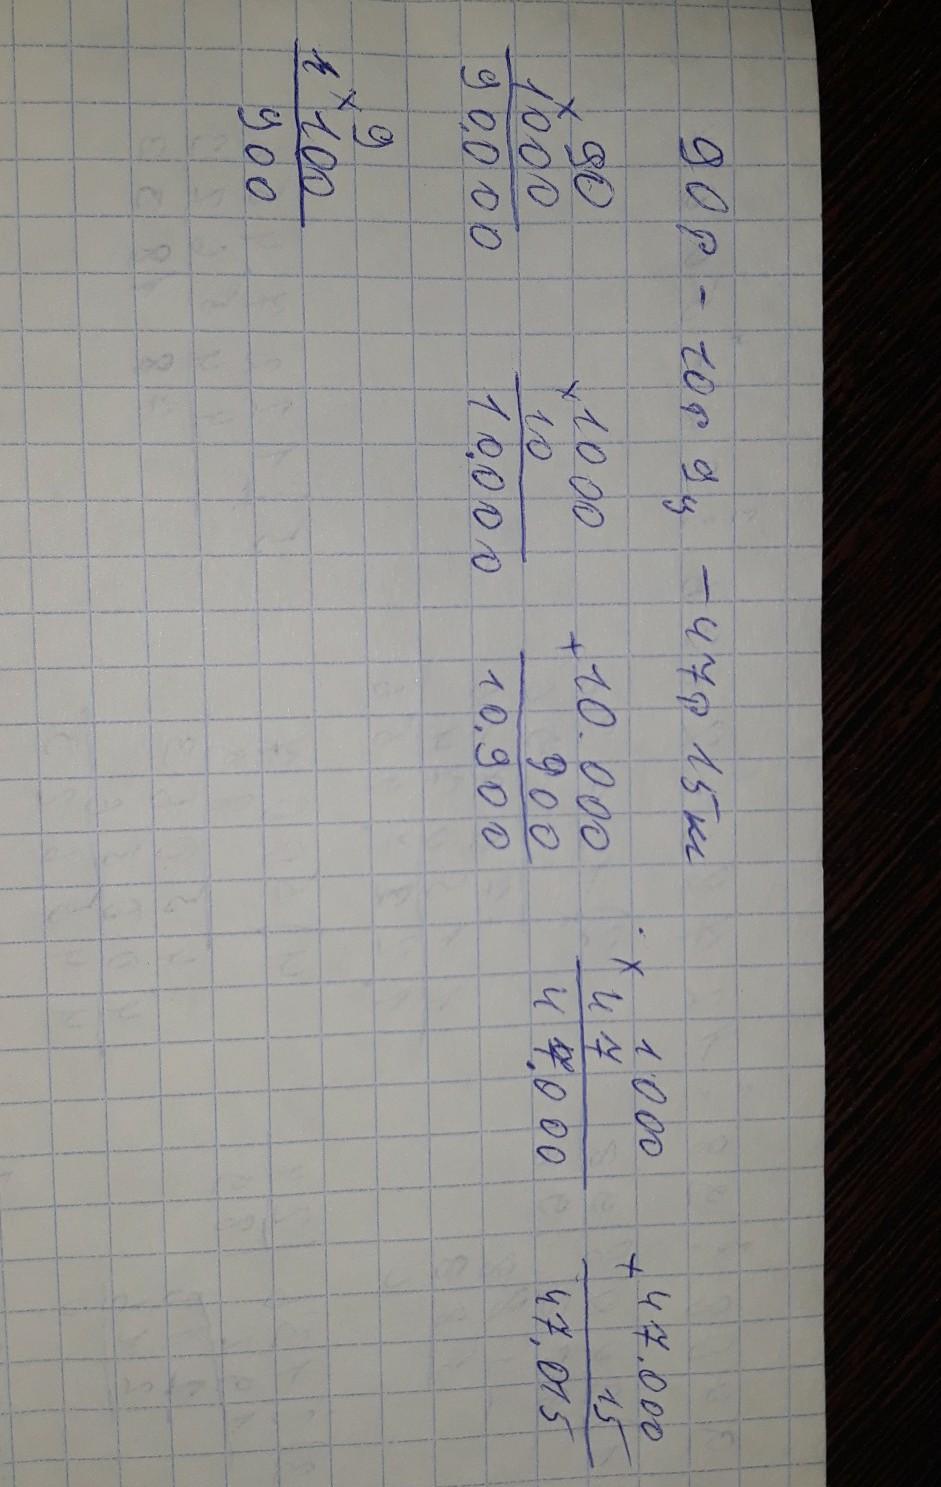 90р - 10р 9ц - 47р 15кг
90
× 1000
90.000
× 1000
10
10.000
+ 10.000
900
10.900
1000
× 47
47.000
+ 47.000
15
47.015
9
× 100
900